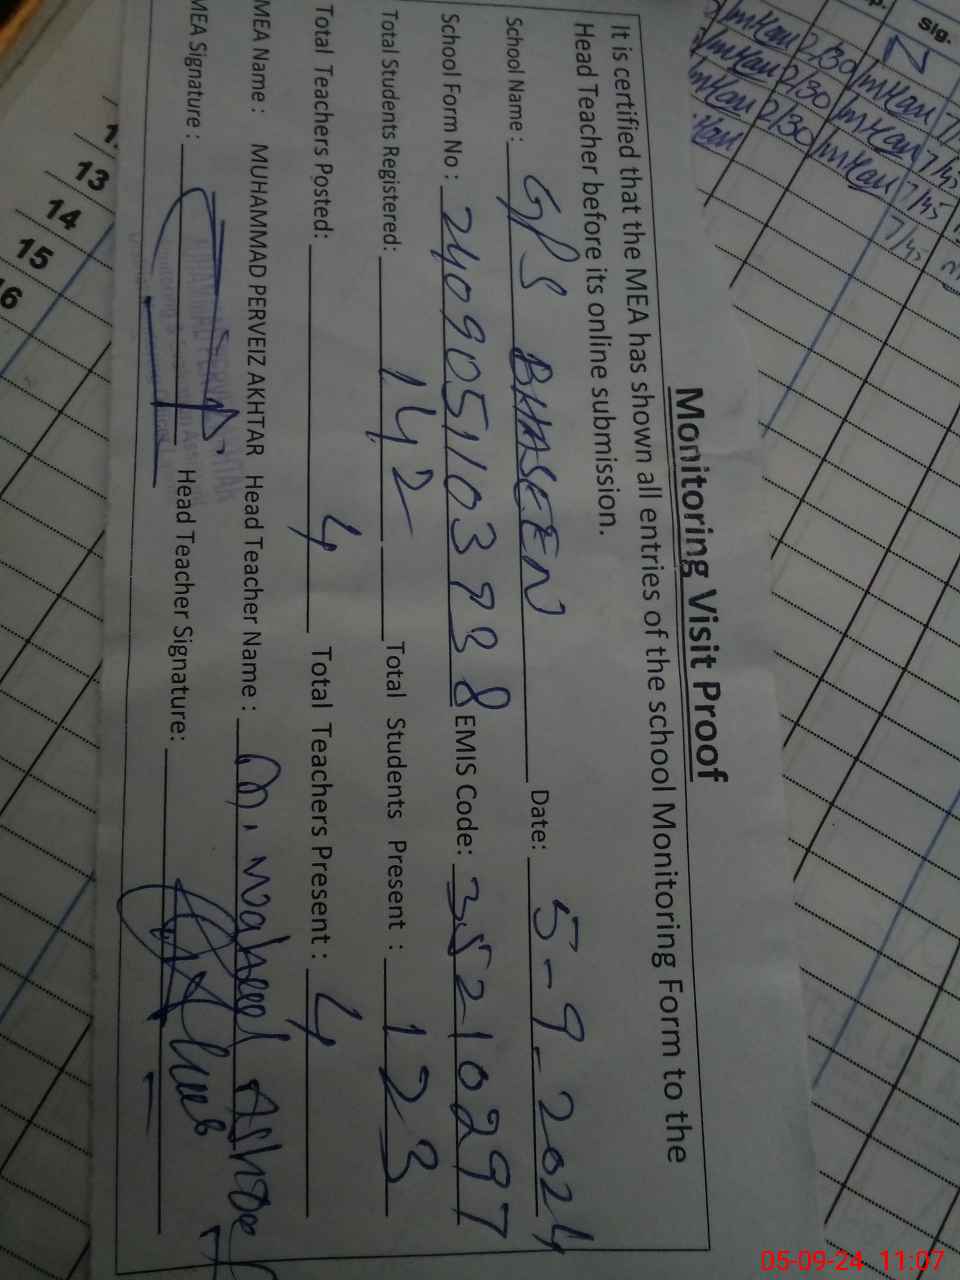 Monitoring Visit Proof
It is certified that the MEA has shown all entries of the school Monitoring Form to the
Head Teacher before its online submission.
School Name: GPS BHASEEN Date: 5-9-2024
School Form No: 2409051103938 EMIS Code: 35210297
Total Students Registered: 142 Total Students Present: 123
Total Teachers Posted: 4 Total Teachers Present: 4
MEA Name: MUHAMMAD PERVEIZ AKHTAR Head Teacher Name: M. Waheed Ashraf
MEA Signature: Head Teacher Signature:
13
14
15
16
Sig.
2/30 7/45
2/30 7/45
2/30 7/45
7/45
05-09-24 11:07